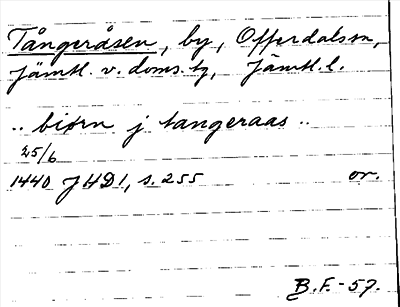 Tångeråsen, by, Offerdals sn,
Jämtl. v. doms. tg, Jämtl. l.
.. biørn j tangeraas ..
25/6
1440 JHD 1, s. 255 or.
B.F. - 57.